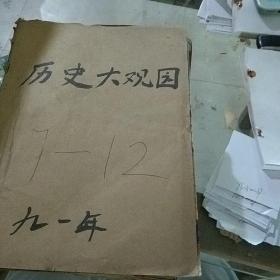 历史大观园
7—12
九一年